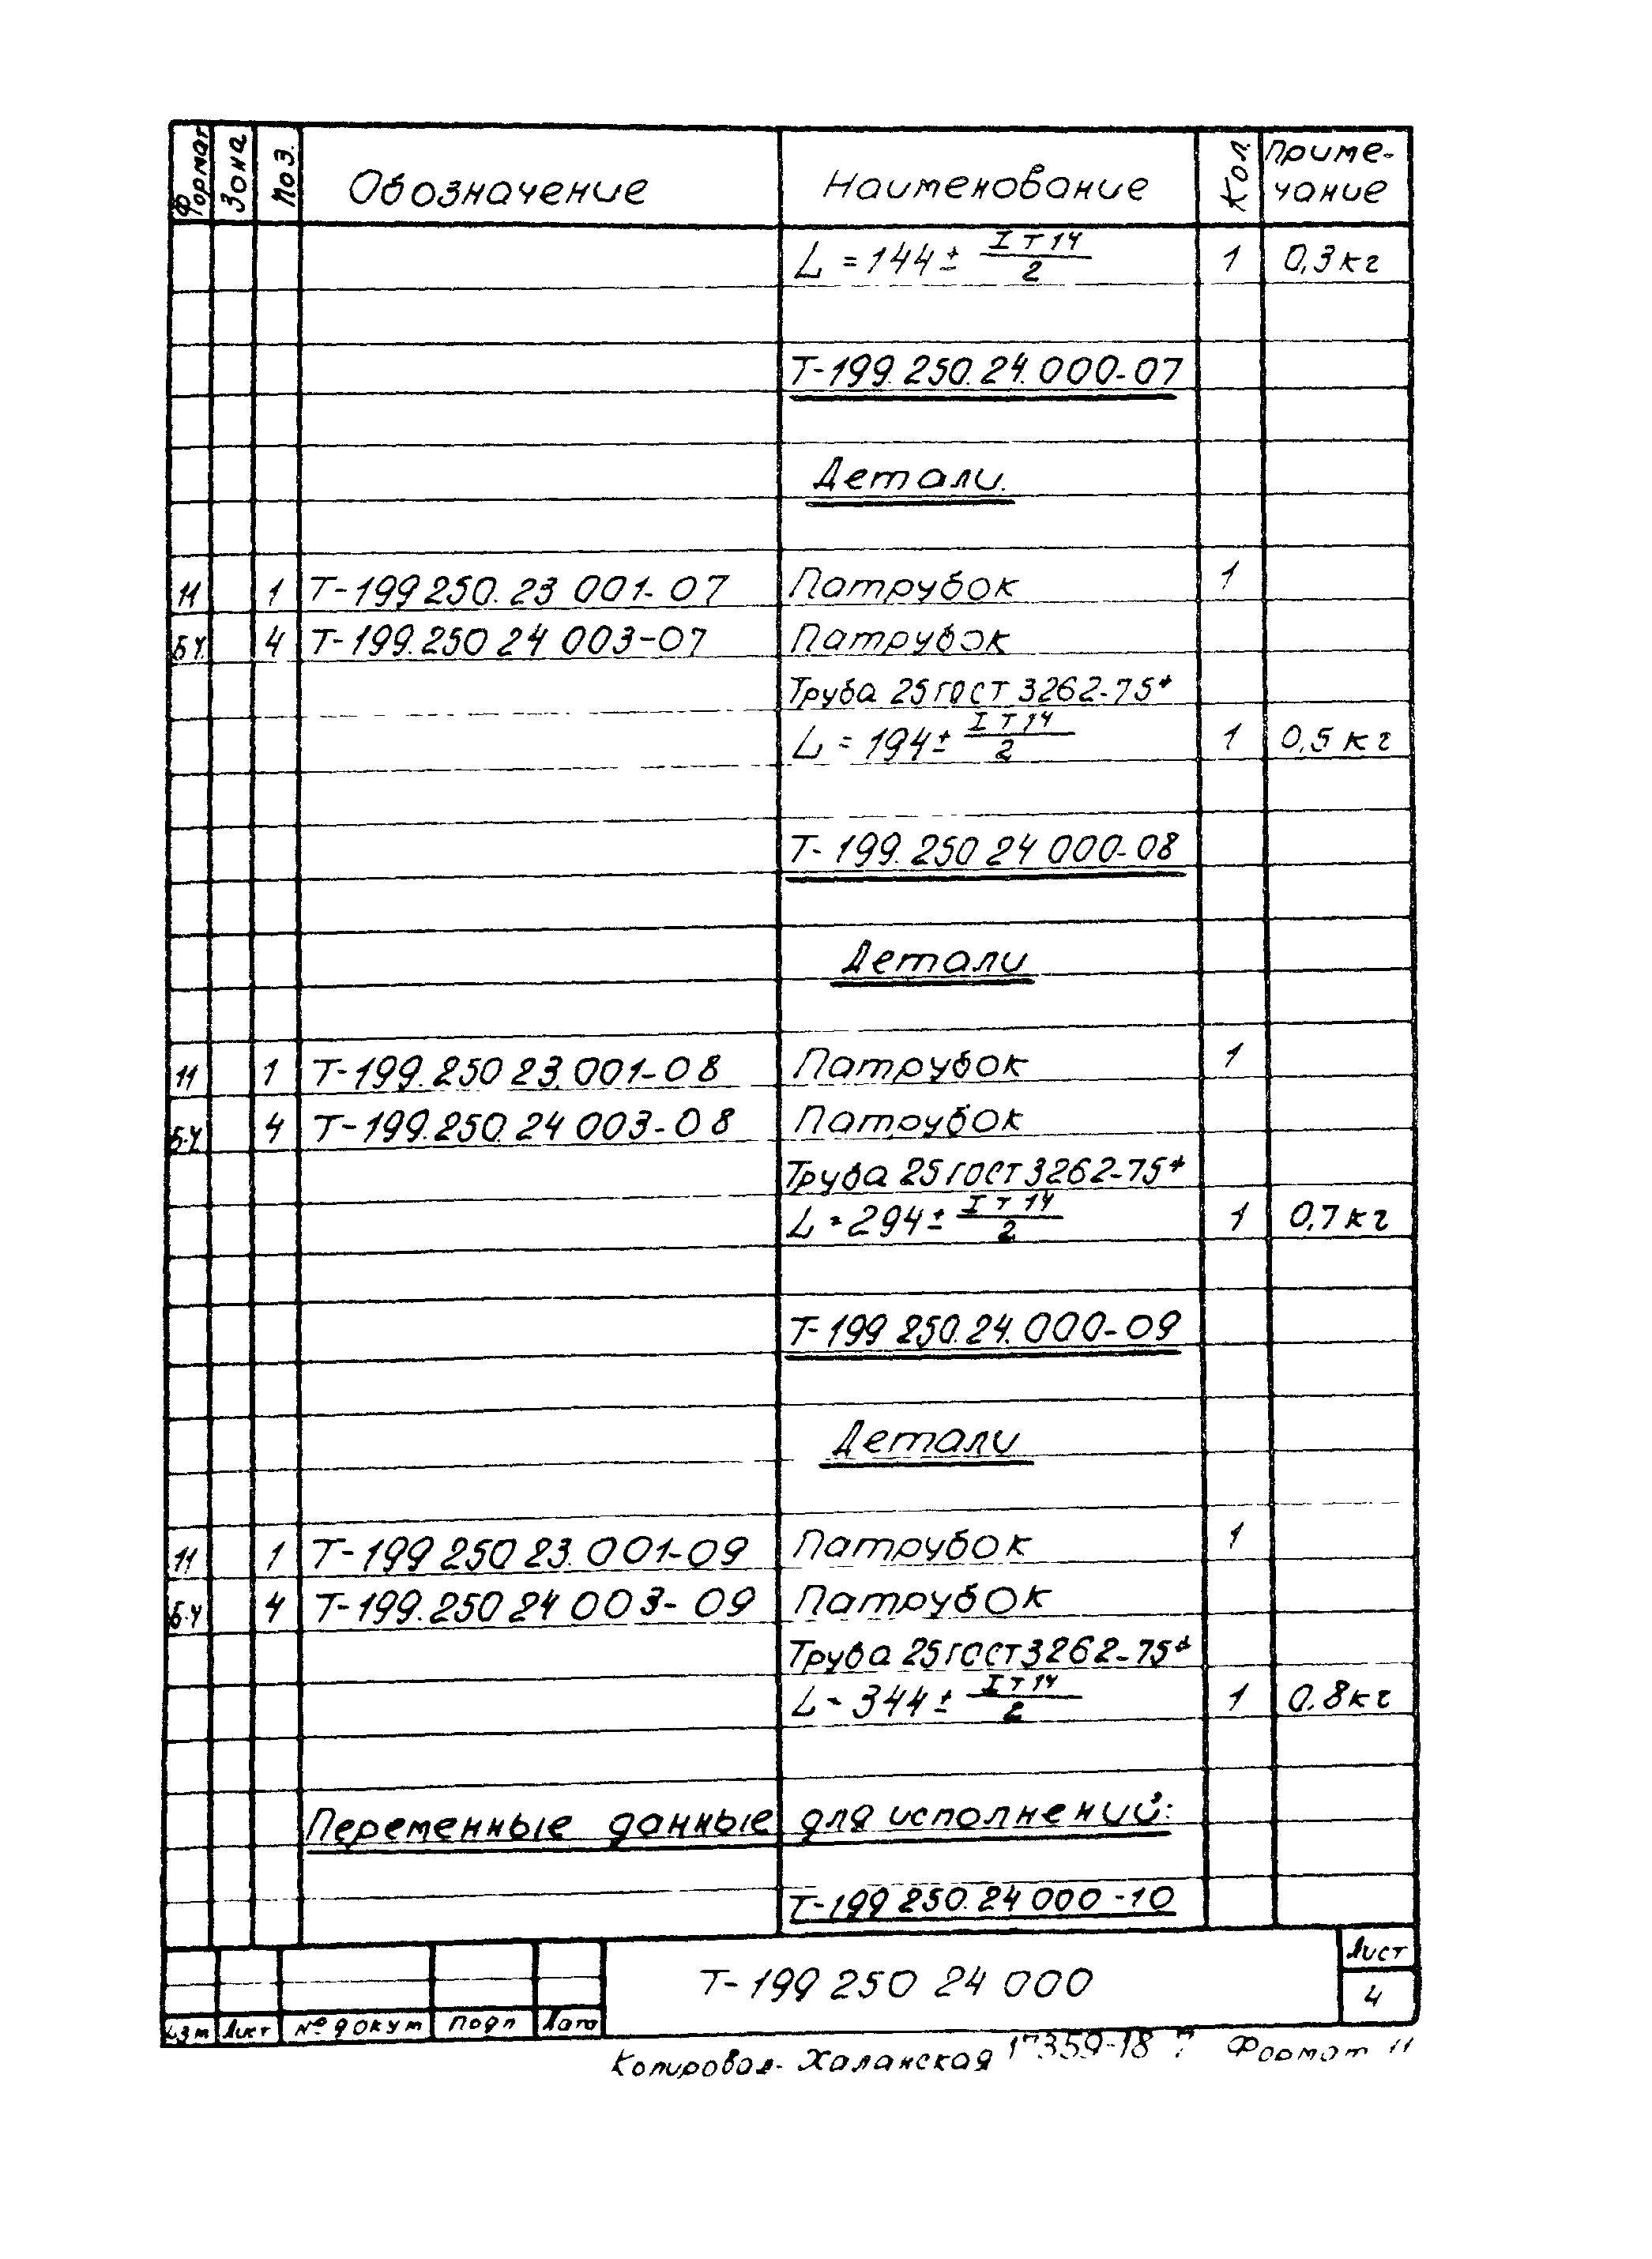 Формат Зона Поз. Обозначение Наименование Кол. Приме-
чание
L = 144 ± IT14/2 1 0,3 кг
Т-199.250.24.000-07
Детали.
11 1 Т-199 250. 23 001-07 Патрубок 1
БЧ. 4 Т-199.250 24 003-07 Патрубок
Труба 25 ГОСТ 3262-75*
L = 194 ± IT14/2 1 0,5 кг
Т-199.250 24 000-08
Детали
11 1 Т-199.250 23.001-08 Патрубок 1
Б.Ч. 4 Т-199.250.24 003-08 Патрубок
Труба 25 ГОСТ 3262-75*
L = 294 ± IT14/2 1 0,7 кг
Т-199 250.24.000-09
Детали
11 1 Т-199 250 23.001-09 Патрубок 1
Б.Ч 4 Т-199.250 24 003-09 Патрубок
Труба 25 ГОСТ 3262-75*
L = 344 ± IT14/2 1 0.8 кг
Переменные данные для исполнений:
Т-199 250.24 000-10
Т-199 250 24 000 Лист
4
Изм Лист № докум Подп Дата
Копировал- Халанская 17359-18 Формат 11